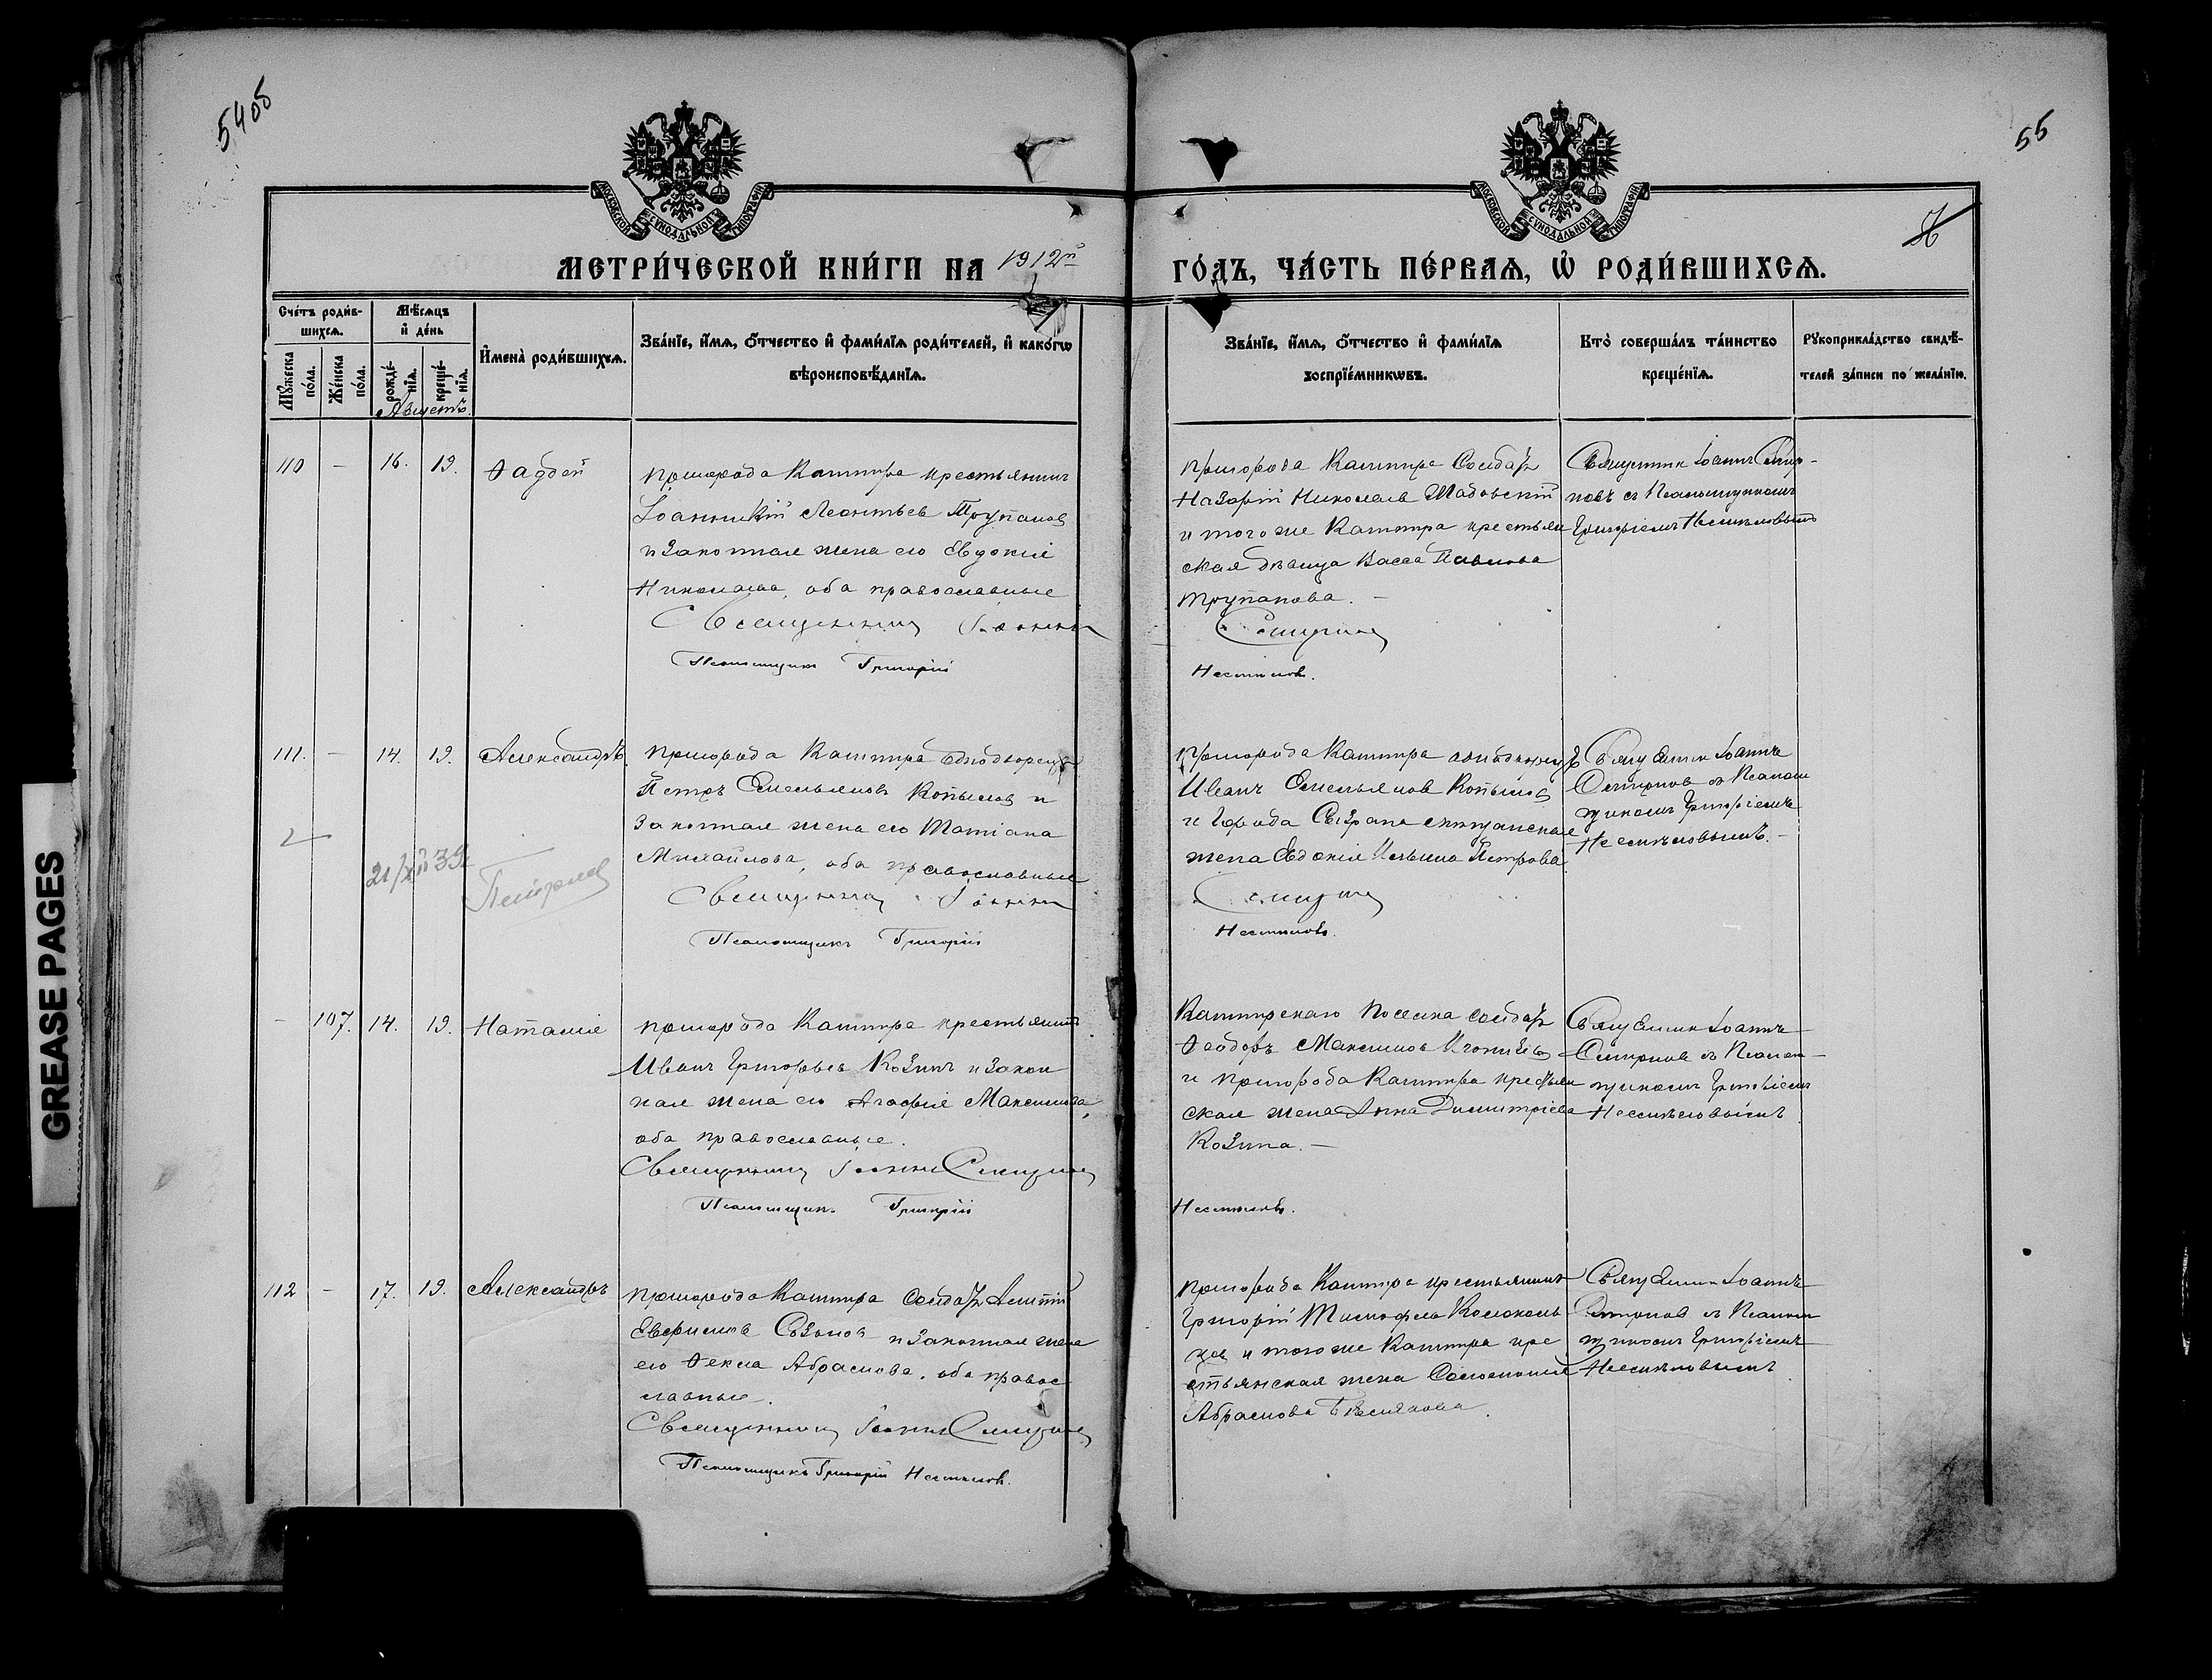 54об
55
56
МОСКОВСКОЙ СѴНОДАЛЬНОЙ ТИПОГРАФІИ
МОСКОВСКОЙ СѴНОДАЛЬНОЙ ТИПОГРАФІИ
МЕТРИ́ЧЕСКОЙ КНИ́ГИ НА 1912й
ГО́ДЪ, ЧА́СТЬ ПЕ́РВАѦ, Ѡ РОДИ́ВШИХСѦ.
Сче́тъ роди́в-
шихсѧ.
Мꙋ́жеска по́ла.
Же́нска по́ла.
Мѣ́сѧцъ
и де́нь
рожде́-нїѧ.
креще́-нїѧ.
Августъ.
Имена̀ роди́вшихсѧ.
Зва́нїе, и́мѧ, ѻ́тчество и фами́лїѧ роди́телей, и како́гѡ
вѣроисповѣ́данїѧ.
Зва́нїе, и́мѧ, ѻ́тчество и фами́лїѧ
воспрїе́мникѡвъ.
Кто̀ соверша́лъ та́инство
креще́нїѧ.
Рꙋкоприкла́дство свидѣ́-
телей за́писи по жела́нїю.
110 – 16. 19. Ѳаддей
пригорода Кашпира крестьянинъ
Іоанникій Леонтьев Трупанов
и законная жена его Евдокия
Николаева, оба православные
Священник Іоанн
Псаломщик Григорій
пригорода Кашпира Солдат
Назарій Николаев
и того же Кашпира крестьян
ская девица Васса Павлова
Трупанова. –
Смирнов
Несмелов.
Священник Іоанн Смир-
нов с Псаломщиком
Григоріем Несмеловым
111. – 14. 19. Александръ.
пригорода Кашпира однодворец
Петръ Емельянов Копылов и
законная жена его Татіана
Михайлова, оба православные
Священник Іоанн
Псаломщикъ Григорій
21/XII 39
Пригорода Кашпира однодворец
Иван Емельянов Копылов
и города Сызрана мещанская
жена Евдокія Петрова
Смирнов
Несмелов.
Священник Іоаннъ
Смирнов съ Псалом
щиком Григоріемъ
Несмеловымъ. –
– 107. 14. 19. Наталія
пригорода Кашпира крестьянинъ
Иван Григорьев Козин и закон
ная жена его Агафія Максимова,
оба православные.
Священник Іоанн Смирнов
Псаломщик Григорій
Кашпирского поселка солдат
Ѳеодоръ Максимов
и пригорода Кашпира крестьян
ская жена Анна Димитріева
Козина. –
Несмелов.
Священник Іоаннъ
Смирнов съ Псалом-
щиком Григоріем
Несмеловымъ
112 – 17. 19. Александръ
пригорода Кашпира Солдат
Евфимов Сызнов и законная жена
его Ѳекла Абрамова, оба правос
лавные.
Священник Іоанн Смирнов
Псаломщикъ Григорій Несмелов.
пригорода Кашпира крестьянин
Григорій Тимофеев
и того же Кашпира кре
стьянская жена Соломонія
Абрамова
Священник Іоаннъ
Смирнов съ Псалом
щиком Григоріемъ
Несмеловымъ
GREASE PAGES